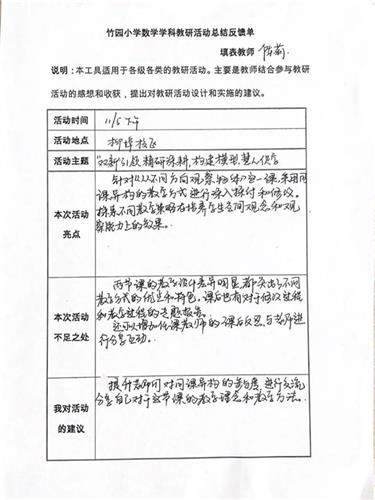 竹园小学数学学科教研活动总结反馈单
填表教师
说明:本工具适用于各级各类的教研活动。主要是教师结合参与教研
活动的感想和收获,提出对教研活动设计和实施的建议。
活动时间 11/5 下午
活动地点 柳埠校区
活动主题 "双新"引领 精研深耕,构建模型 慧人
本次活动亮点 针对《从不同方向观察物体》这一课,采用同
课异构的教学方式进行深入探讨和
探索不同教学策略在培养学生空间观念和观
察能力上的效果。
本次活动不足之处 两节课的教学设计差异明显,都突出了不同
教学方式的优点和特色。课后也有对于修改过程
和教学过程的专题报告。
还可以增加任课教师的课后反思,与老师进
行分享互动。
我对活动的建议 提升老师们对同课异构的参与度,进行交流,
分享自己对于这节课的教学理念和教学方法。